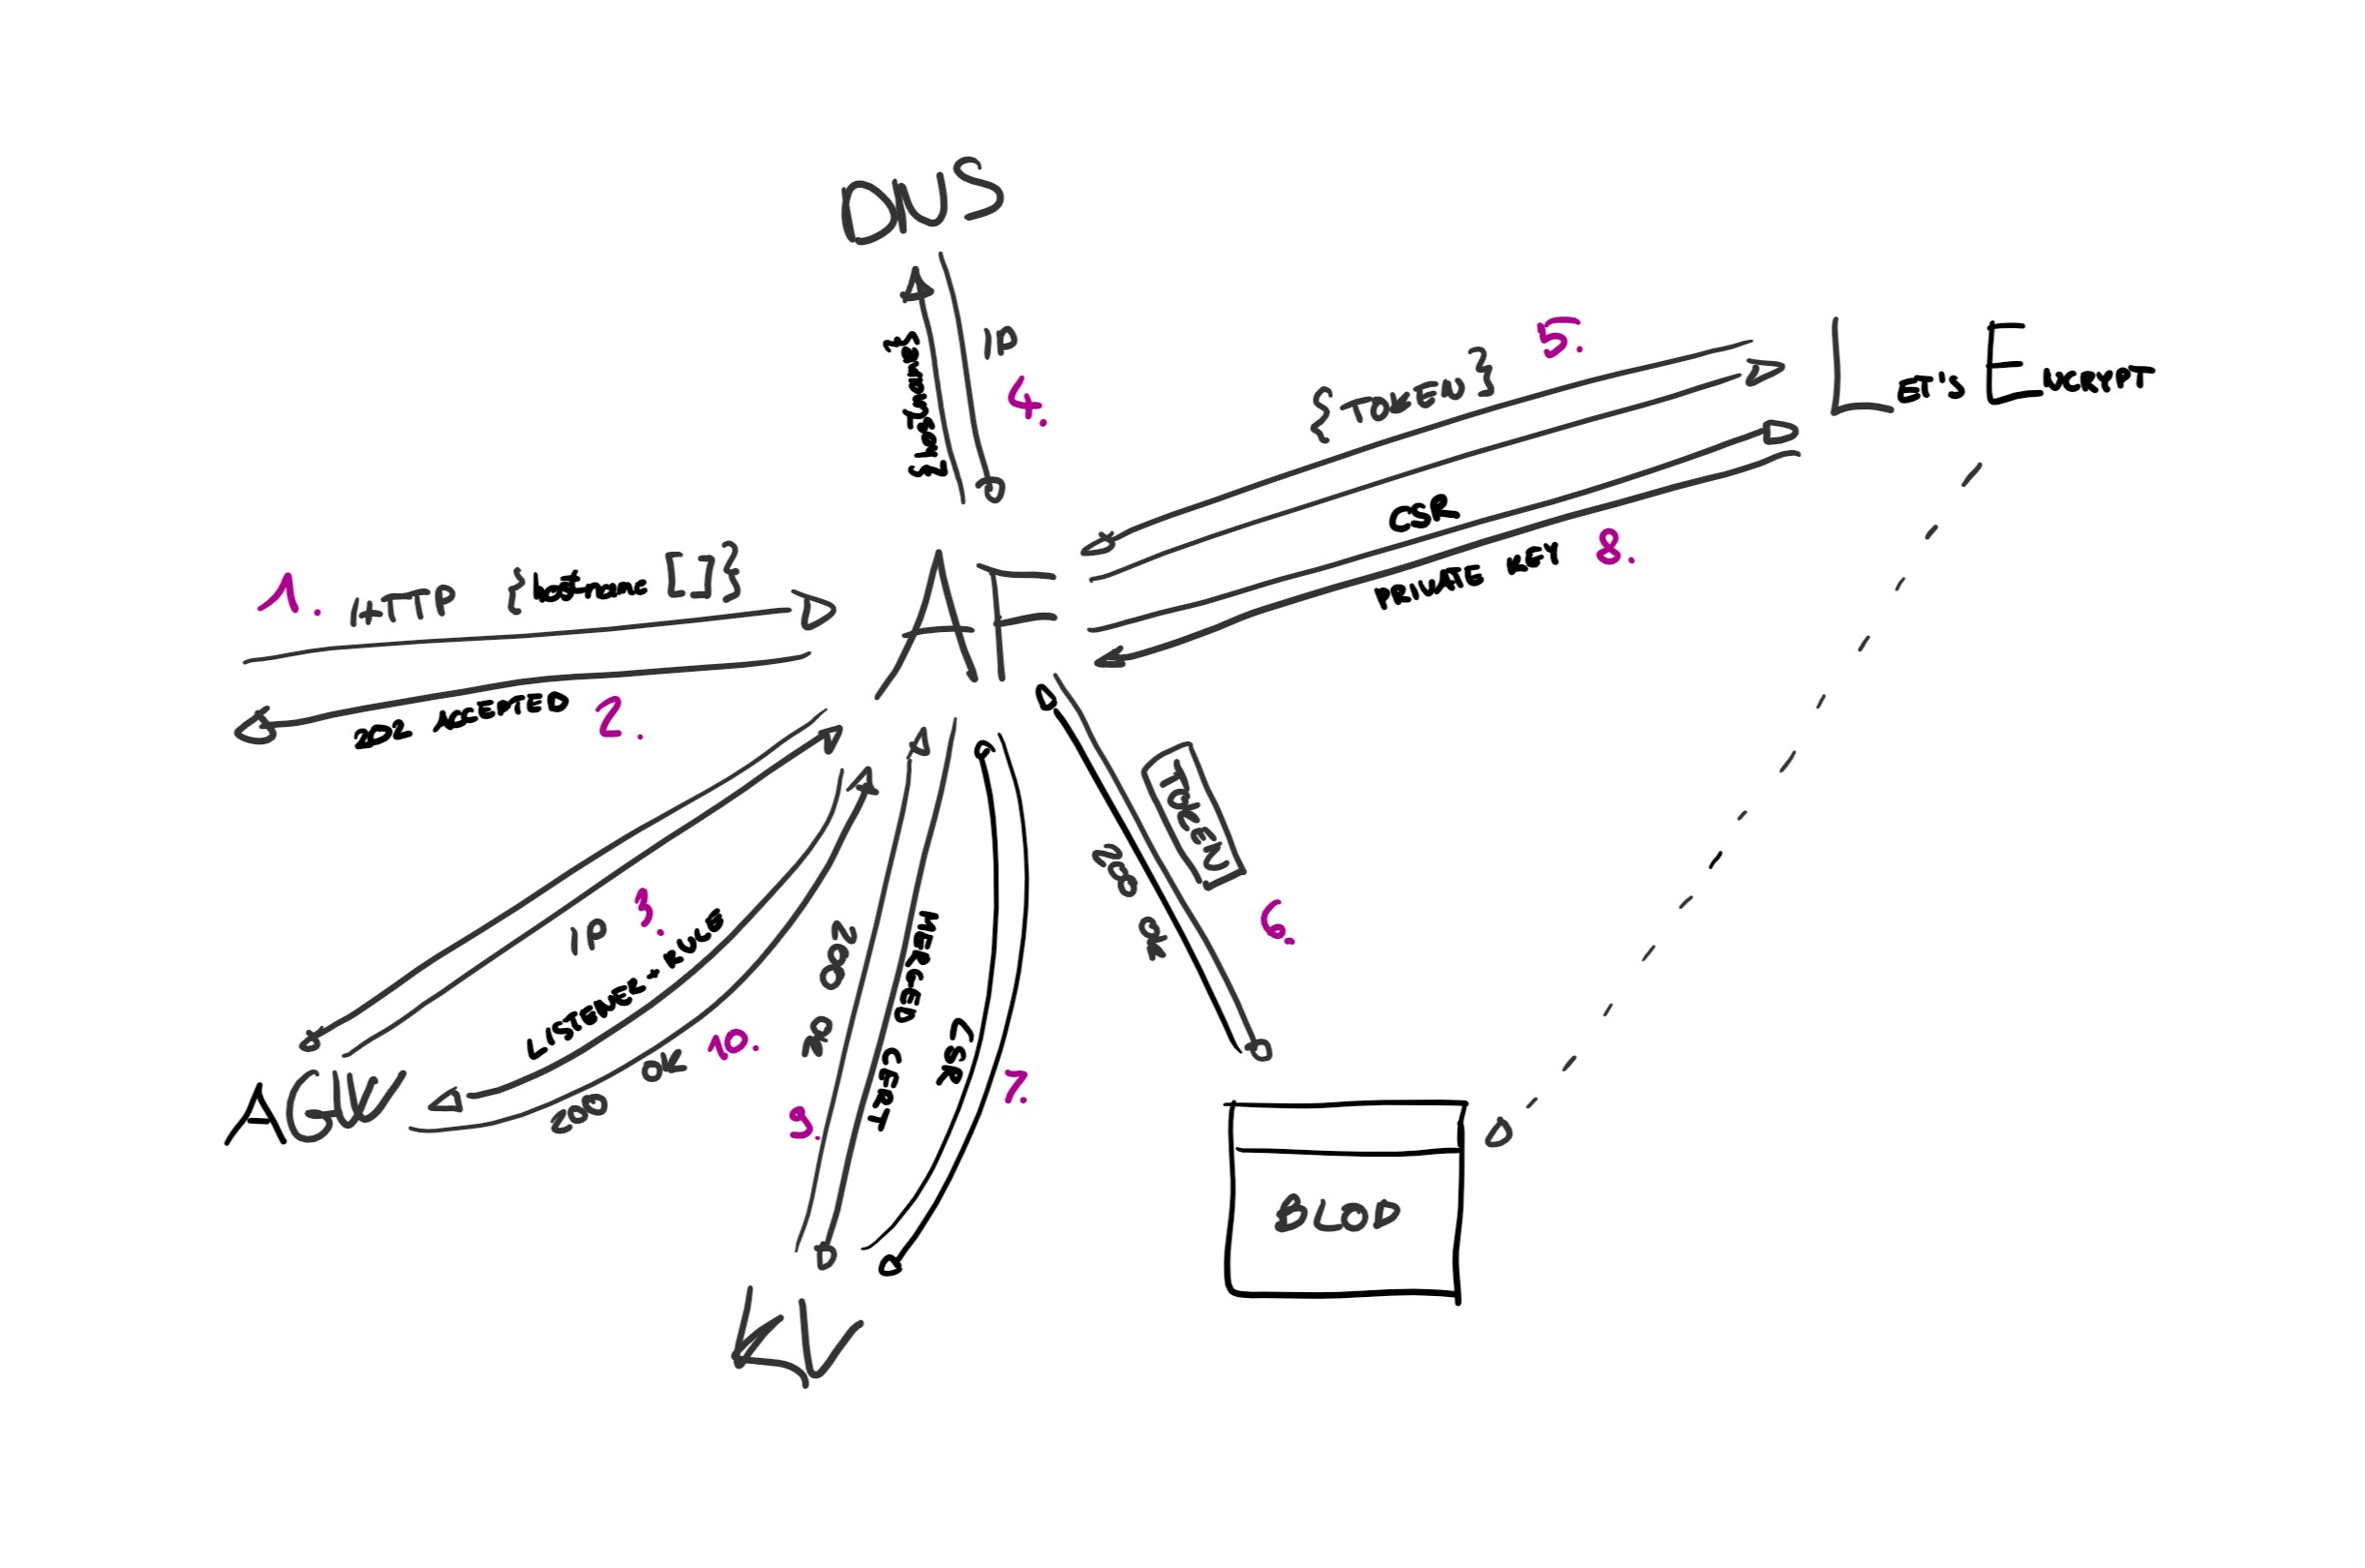 DNS
{hostname}
IP
4.
5.
{TOKEN}
LET'S ENCRYPT
CSR
PRIVATE KEY 8.
1. HTTP {hostname []}
AF
202 ACCEPTED 2.
TOKEN
200 OK
6.
IP 3.
LISTENER + RULE
200 OK 10.
200
MERGED CERT
9.
CSR
7.
AGW
KV
BLOB